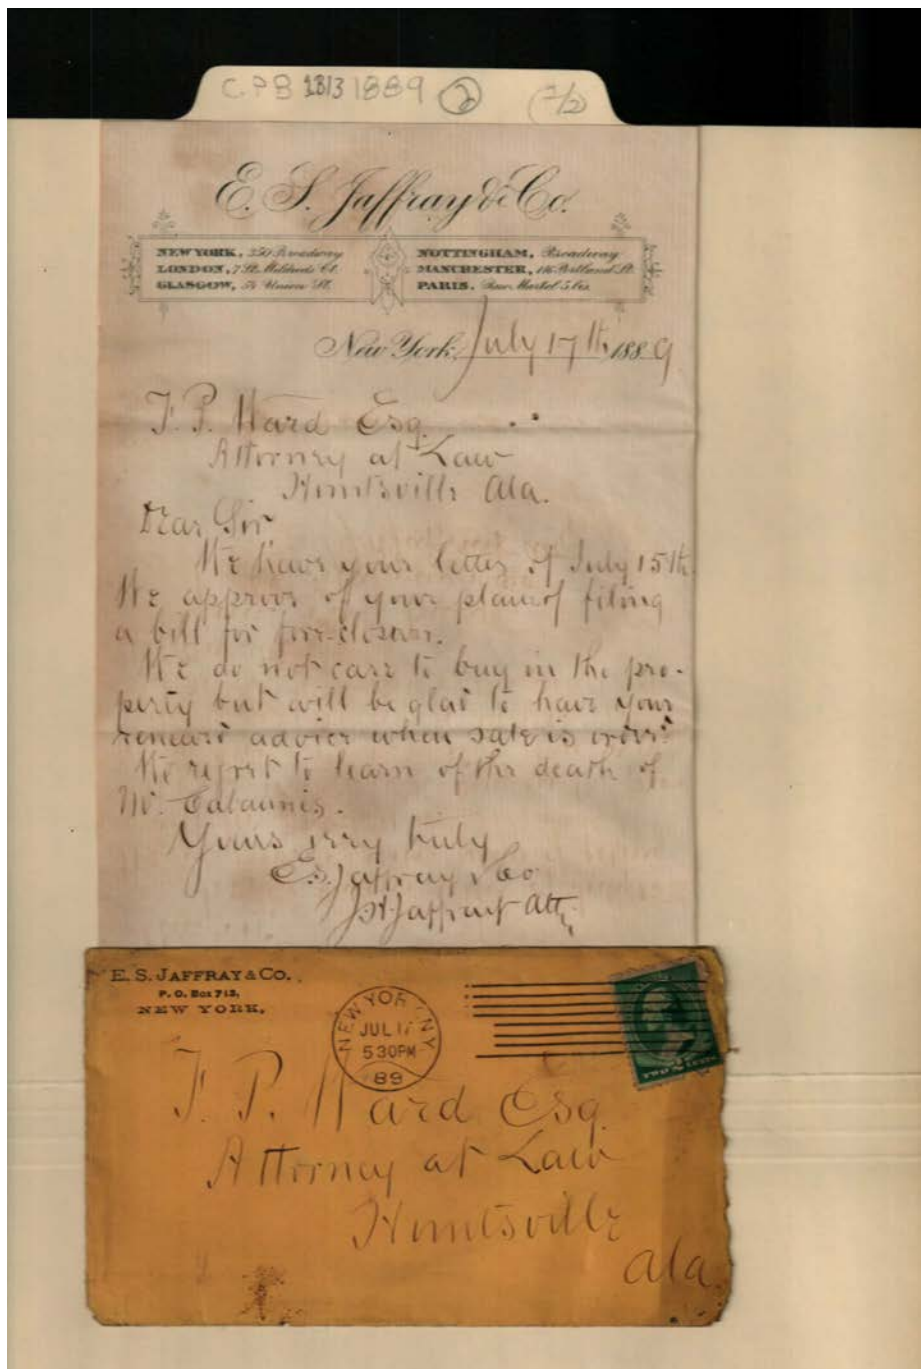 CPB 1813 1889 2 (1/2)
E. S. Jaffray & Co.
NEW YORK, 350 Broadway
LONDON, 7 St. Mildreds Ct.
GLASGOW, 54 Union St.
NOTTINGHAM, Broadway
MANCHESTER, 116 Portland St.
PARIS. Rue Martel 5 bis
New York, July 17th 1889
F. P. Ward Esq.
Attorney at Law
Huntsville Ala.
Dear Sir
We have your letter of July 15th.
We approve of your plan of filing
a bill for
We do not care to buy in the pro-
perty but will be glad to have your
advice when sale is
We regret to learn of the death of
Mr.
Yours very truly
E.S. Jaffray & Co
Jaffray Atty
E. S. JAFFRAY & CO.
P. O. Box 713,
NEW YORK.
NEW YORK NY
JUL 17
530PM
89
TWO CENTS
F. P. Ward Esq.
Attorney at Law
Huntsville
Ala